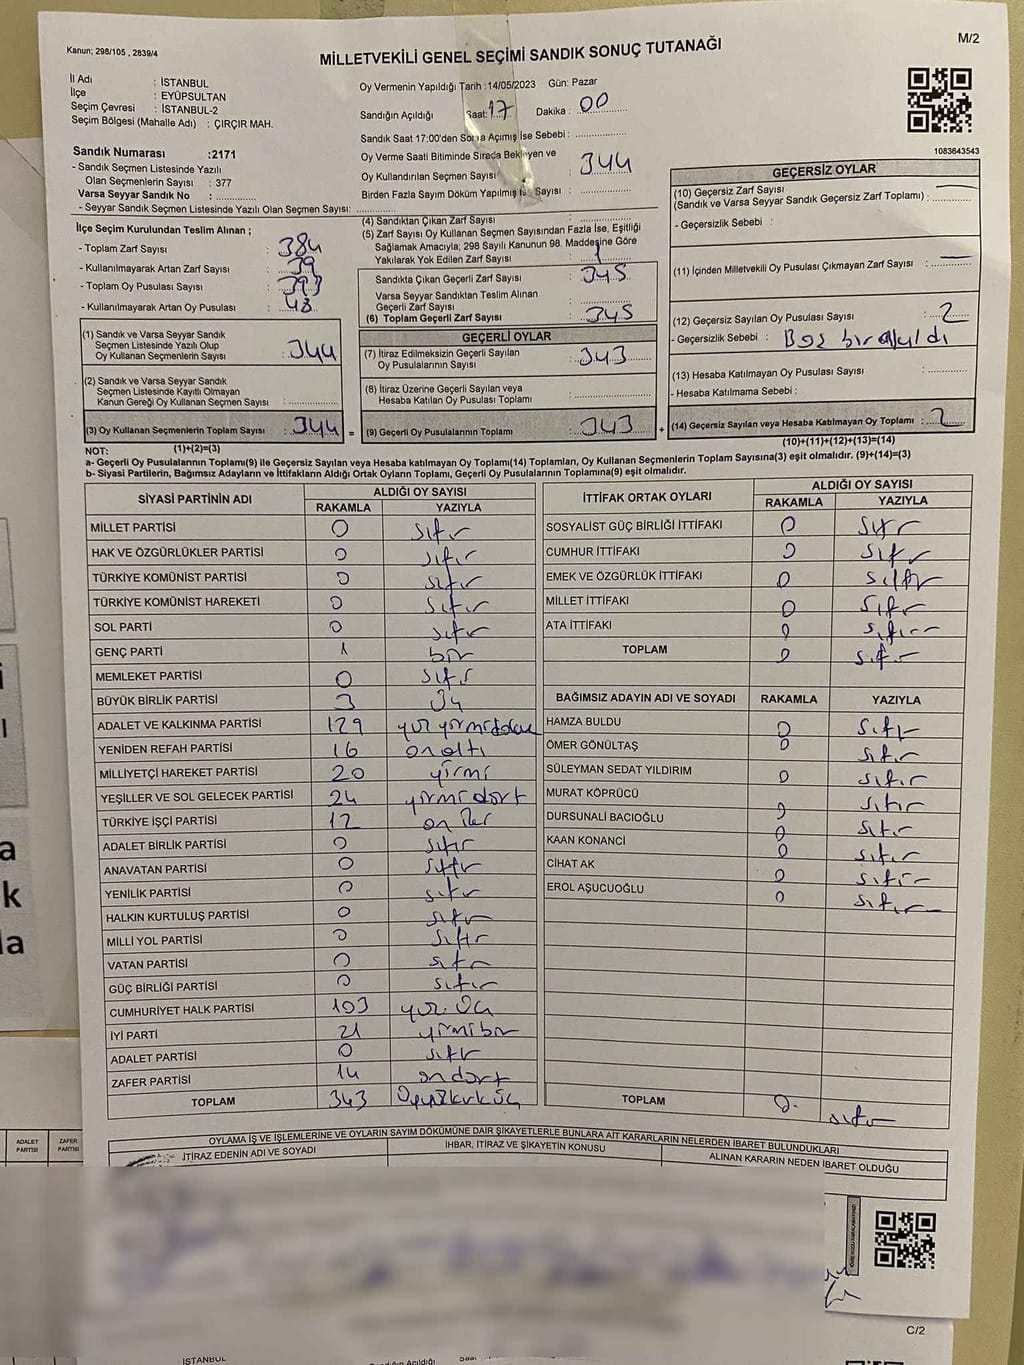 Kanun; 298/105 , 2839/4
MİLLETVEKİLİ GENEL SEÇİMİ SANDIK SONUÇ TUTANAĞI
M/2
İl Adı : İSTANBUL
İlçe : EYÜPSULTAN
Seçim Çevresi : İSTANBUL-2
Seçim Bölgesi (Mahalle Adı) : ÇIRÇIR MAH.
Sandık Numarası :2171
- Sandık Seçmen Listesinde Yazılı
Olan Seçmenlerin Sayısı : 377
Varsa Seyyar Sandık No :
- Seyyar Sandık Seçmen Listesinde Yazılı Olan Seçmen Sayısı:
Oy Vermenin Yapıldığı Tarih :14/05/2023 Gün: Pazar
Sandığın Açıldığı Saat: 17 Dakika : 00
Sandık Saat 17:00'den Sonra Açılmış İse Sebebi :
Oy Verme Saati Bitiminde Sırada Bekleyen ve
Oy Kullandırılan Seçmen Sayısı : 344
Birden Fazla Sayım Döküm Yapılmış İse Sayısı :
1083643543
İlçe Seçim Kurulundan Teslim Alınan ;
- Toplam Zarf Sayısı : 384
- Kullanılmayarak Artan Zarf Sayısı : 39
- Toplam Oy Pusulası Sayısı : 393
- Kullanılmayarak Artan Oy Pusulası : 48
(1) Sandık ve Varsa Seyyar Sandık
Seçmen Listesinde Yazılı Olup
Oy Kullanan Seçmenlerin Sayısı : 344
(2) Sandık ve Varsa Seyyar Sandık
Seçmen Listesinde Kayıtlı Olmayan
Kanun Gereği Oy Kullanan Seçmen Sayısı :
(3) Oy Kullanan Seçmenlerin Toplam Sayısı : 344 =
(1)+(2)=(3)
(4) Sandıktan Çıkan Zarf Sayısı :
(5) Zarf Sayısı Oy Kullanan Seçmen Sayısından Fazla İse, Eşitliği
Sağlamak Amacıyla; 298 Sayılı Kanunun 98. Maddesine Göre
Yakılarak Yok Edilen Zarf Sayısı : 1
Sandıkta Çıkan Geçerli Zarf Sayısı : 345
Varsa Seyyar Sandıktan Teslim Alınan
Geçerli Zarf Sayısı :
(6) Toplam Geçerli Zarf Sayısı : 345
GEÇERLİ OYLAR
(7) İtiraz Edilmeksizin Geçerli Sayılan
Oy Pusulalarının Sayısı : 343
(8) İtiraz Üzerine Geçerli Sayılan veya
Hesaba Katılan Oy Pusulası Toplamı :
(9) Geçerli Oy Pusulalarının Toplamı : 343 +
GEÇERSİZ OYLAR
(10) Geçersiz Zarf Sayısı
(Sandık ve Varsa Seyyar Sandık Geçersiz Zarf Toplamı) :
- Geçersizlik Sebebi :
(11) İçinden Milletvekili Oy Pusulası Çıkmayan Zarf Sayısı :
(12) Geçersiz Sayılan Oy Pusulası Sayısı : 2
- Geçersizlik Sebebi : Boş bırakıldı
(13) Hesaba Katılmayan Oy Pusulası Sayısı :
- Hesaba Katılmama Sebebi :
(14) Geçersiz Sayılan veya Hesaba Katılmayan Oy Toplamı : 2
(10)+(11)+(12)+(13)=(14)
NOT:
a- Geçerli Oy Pusulalarının Toplamı(9) ile Geçersiz Sayılan veya Hesaba Katılmayan Oy Toplamı(14) Toplamları, Oy Kullanan Seçmenlerin Toplam Sayısına(3) eşit olmalıdır. (9)+(14)=(3)
b- Siyasi Partilerin, Bağımsız Adayların ve İttifakların Aldığı Ortak Oyların Toplamı, Geçerli Oy Pusulalarının Toplamına(9) eşit olmalıdır.
SİYASİ PARTİNİN ADI ALDIĞI OY SAYISI
RAKAMLA YAZIYLA
MİLLET PARTİSİ 0 sıfır
HAK VE ÖZGÜRLÜKLER PARTİSİ 0 sıfır
TÜRKİYE KOMÜNİST PARTİSİ 0 sıfır
TÜRKİYE KOMÜNİST HAREKETİ 0 sıfır
SOL PARTİ 0 sıfır
GENÇ PARTİ 1 bir
MEMLEKET PARTİSİ 0 sıfır
BÜYÜK BİRLİK PARTİSİ 3 üç
ADALET VE KALKINMA PARTİSİ 129 yüz yirmi dokuz
YENİDEN REFAH PARTİSİ 16 on altı
MİLLİYETÇİ HAREKET PARTİSİ 20 yirmi
YEŞİLLER VE SOL GELECEK PARTİSİ 24 yirmi dört
TÜRKİYE İŞÇİ PARTİSİ 12 on iki
ADALET BİRLİK PARTİSİ 0 sıfır
ANAVATAN PARTİSİ 0 sıfır
YENİLİK PARTİSİ 0 sıfır
HALKIN KURTULUŞ PARTİSİ 0 sıfır
MİLLİ YOL PARTİSİ 0 sıfır
VATAN PARTİSİ 0 sıfır
GÜÇ BİRLİĞİ PARTİSİ 0 sıfır
CUMHURİYET HALK PARTİSİ 103 yüz üç
İYİ PARTİ 21 yirmi bir
ADALET PARTİSİ 0 sıfır
ZAFER PARTİSİ 14 on dört
TOPLAM 343 Üçyüzkırküç
İTTİFAK ORTAK OYLARI ALDIĞI OY SAYISI
RAKAMLA YAZIYLA
SOSYALİST GÜÇ BİRLİĞİ İTTİFAKI 0 sıfır
CUMHUR İTTİFAKI 0 sıfır
EMEK VE ÖZGÜRLÜK İTTİFAKI 0 sıfır
MİLLET İTTİFAKI 0 sıfır
ATA İTTİFAKI 0 sıfır
TOPLAM 0 sıfır
BAĞIMSIZ ADAYIN ADI VE SOYADI RAKAMLA YAZIYLA
HAMZA BULDU 0 sıfır
ÖMER GÖNÜLTAŞ 0 sıfır
SÜLEYMAN SEDAT YILDIRIM 0 sıfır
MURAT KÖPRÜCÜ 0 sıfır
DURSUNALİ BACIOĞLU 0 sıfır
KAAN KONANCİ 0 sıfır
CİHAT AK 0 sıfır
EROL AŞUCUOĞLU 0 sıfır
TOPLAM 0 sıfır
OYLAMA İŞ VE İŞLEMLERİNE VE OYLARIN SAYIM DÖKÜMÜNE DAİR ŞİKAYETLERLE BUNLARA AİT KARARLARIN NELERDEN İBARET BULUNDUKLARI
İTİRAZ EDENİN ADI VE SOYADI İHBAR, İTİRAZ VE ŞİKAYETİN KONUSU ALINAN KARARIN NEDEN İBARET OLDUĞU
ADALET PARTİSİ ZAFER PARTİSİ
C/2
İSTANBUL
Sandığın Açıldığı Saat